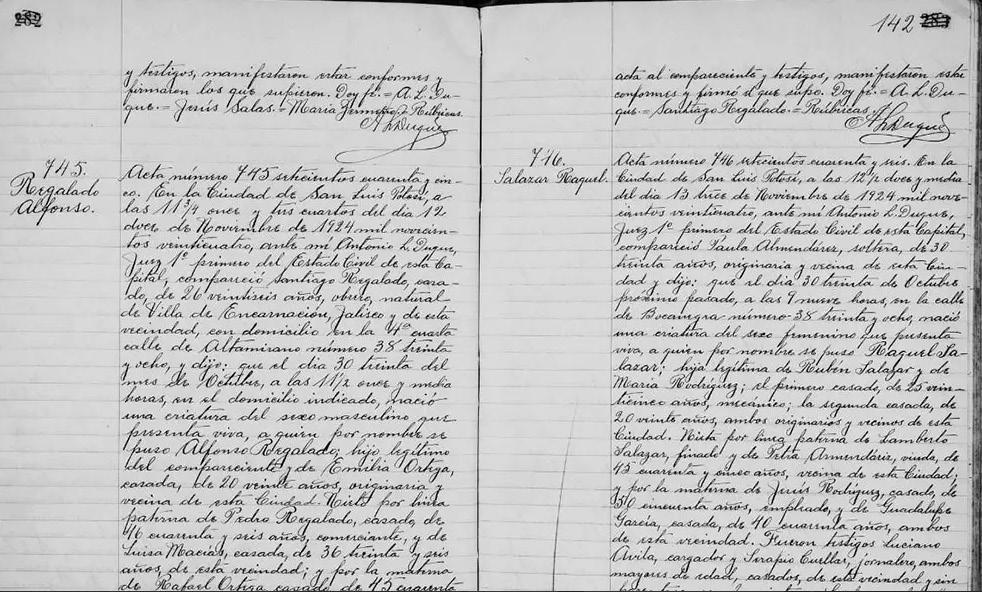 282
y testigos, manifestaron estar conformes y
firmaron los que supieron. Doy fé: = A. L. Du-
que. = Jesús Salas. = María Jimenez. = Rúbricas.
A L Duque
745.
Regalado
Alfonso.
Acta número 745 setecientos cuarenta y cin-
co. En la Ciudad de San Luis Potosí, a
las 11 3/4 once y tres cuartos del día 12
doce de Noviembre de 1924 mil novecien-
tos veinticuatro, ante mí Antonio L. Duque,
Juez 1º primero del Estado Civil de esta Ca-
pital, compareció Santiago Regalado, casa-
do, de 26 veintiseis años, obrero, natural
de Villa de Encarnación, Jalisco y de esta
vecindad, con domicilio en la 4ª cuarta
calle de Altamirano número 38 treinta
y ocho, y dijo: que el día 30 treinta del
mes de Octubre, a las 11 1/2 once y media
horas, en el domicilio indicado, nació
una criatura del sexo masculino que
presenta viva, a quien por nombre se
puso Alfonso Regalado; hijo legítimo
del compareciente y de Emilia Ortega,
casada, de 20 veinte años, originaria y
vecina de esta Ciudad. Nieto por línea
paterna de Pedro Regalado, casado, de
46 cuarenta y seis años, comerciante, y de
Luisa Macías, casada, de 36 treinta y seis
años, de esta vecindad; y por la materna
de Rafael Ortega casado, de 45 cuarenta
142
acta al compareciente y testigos, manifestaron estar
conformes y firmó el que supo. Doy fé: = A. L. Du-
que. = Santiago Regalado. = Rúbricas.
A L Duque
746.
Salazar Raquel.
Acta número 746 setecientos cuarenta y seis. En la
Ciudad de San Luis Potosí, a las 12 1/2 doce y media
del día 13 trece de Noviembre de 1924 mil nove-
cientos veinticuatro, ante mí Antonio L. Duque,
Juez 1º primero del Estado Civil de esta Capital,
compareció Paula Almendárez, soltera, de 30
treinta años, originaria y vecina de esta Ciu-
dad y dijo: que el día 30 treinta de Octubre
próximo pasado, a las 9 nueve horas, en la calle
de Bocanegra número 38 treinta y ocho, nació
una criatura del sexo femenino que presenta
viva, a quien por nombre se puso Raquel Sa-
lazar; hija legítima de Ruben Salazar y de
María Rodríguez; el primero casado, de 25 vein-
ticinco años, mecánico; la segunda casada, de
20 veinte años, ambos originarios y vecinos de esta
Ciudad. Nieta por línea paterna de Lamberto
Salazar, finado y de Petra Armendáriz, viuda, de
45 cuarenta y cinco años, vecina de esta Ciudad;
y por la materna de Jesús Rodríguez, casado, de
50 cincuenta años, empleado, y de Guadalupe
García, casada, de 40 cuarenta años, ambos
de esta vecindad. Fueron testigos Luciano
Avila, cargador y Serapio Cuellar, jornalero, ambos
mayores de edad, casados, de esta vecindad y sin